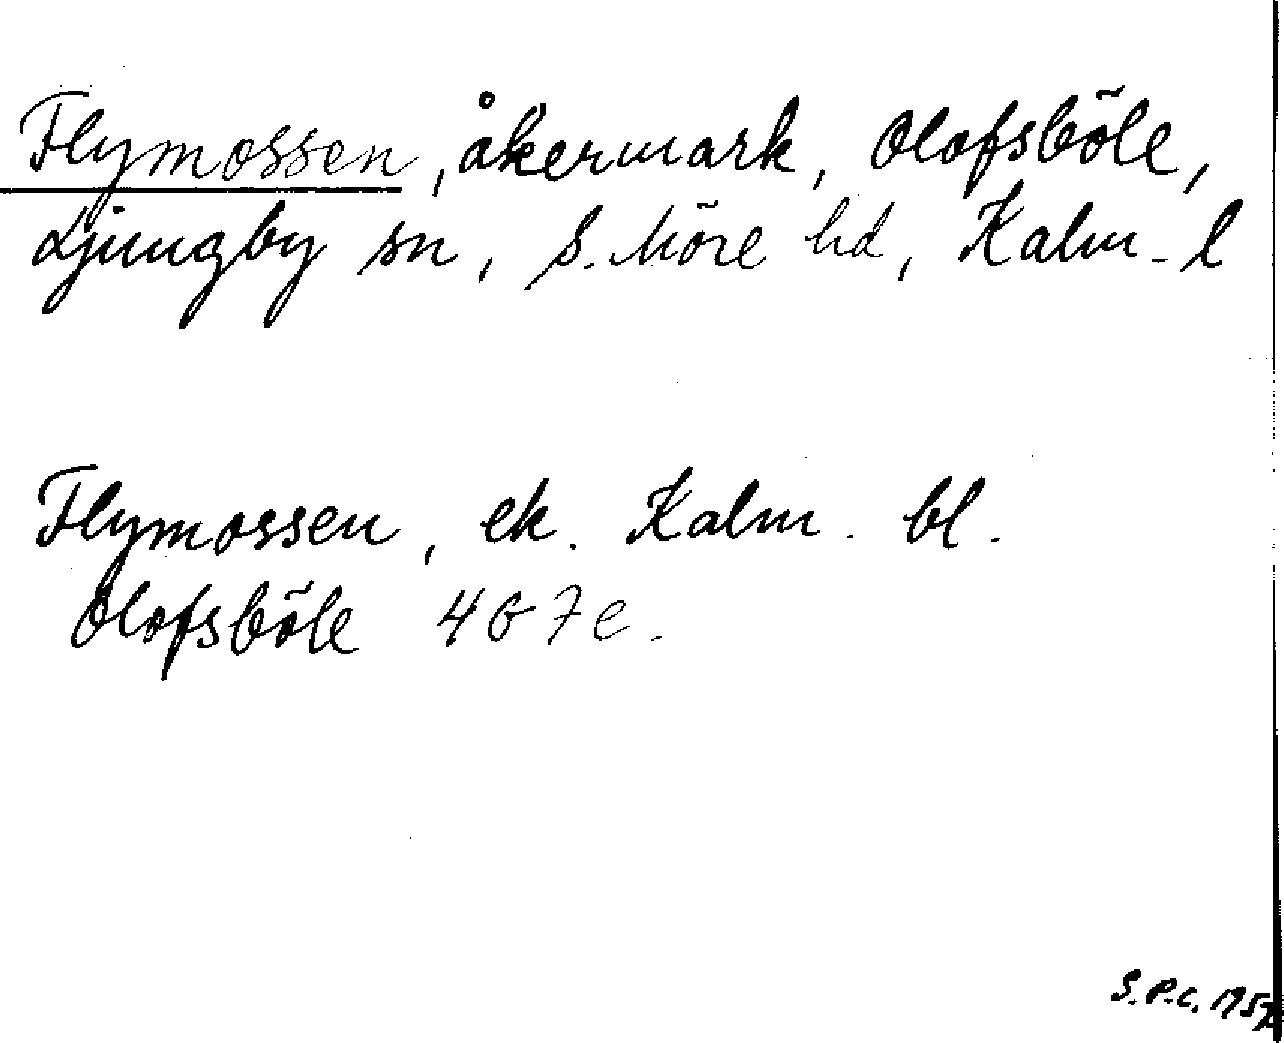 Flymossen, åkermark, Olofsböle,
Ljungby sn, S. Möre hd, Kalm. l
Flymossen, ek. Kalm. bl.
Olofsböle 4G7e.
S.P.C. 1957